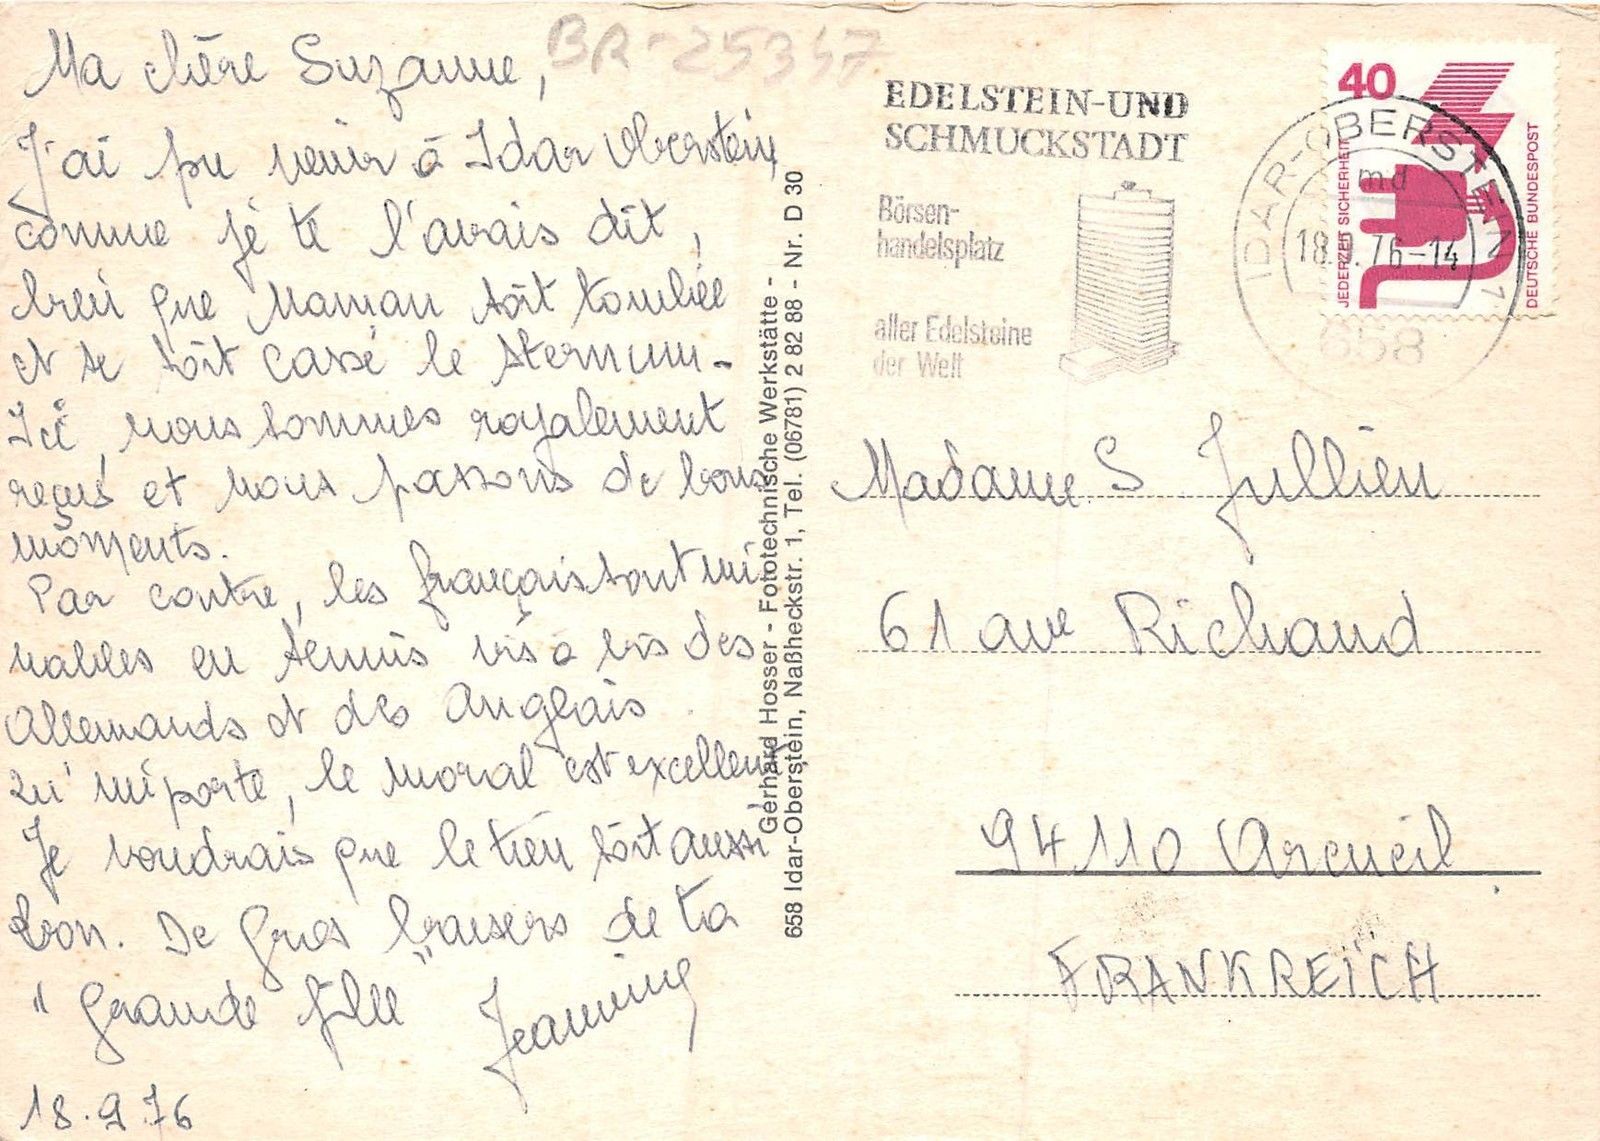 BR-25347
Ma chère Suzanne,
J'ai pu venir à Idar Oberstein
comme je te l'avais dit,
bien que Maman soit tombée
et se soit cassé le sternum.
Ici, nous sommes royalement
reçus et nous passons de bons
moments.
Par contre, les français sont mi
nables en tennis vis à vis des
Allemands et des Anglais.
Qu'importe, le moral est excellent
Je voudrais que le tien soit aussi
bon. De gros baisers de ta
"grande fille" Jeannine
18.9.76
Gerhard Hosser - Fototechnische Werkstätte -
658 Idar-Oberstein, Naßheckstr. 1, Tel. (06781) 2 82 88 - Nr. D 30
EDELSTEIN-UND
SCHMUCKSTADT
Börsen-
handelsplatz
aller Edelsteine
der Welt
IDAR-OBERSTEIN 1
md
18.9.76-14
658
40
JEDERZEIT SICHERHEIT
DEUTSCHE BUNDESPOST
Madame S Jullien
61 ave Richaud
94110 Arcueil
FRANKREICH